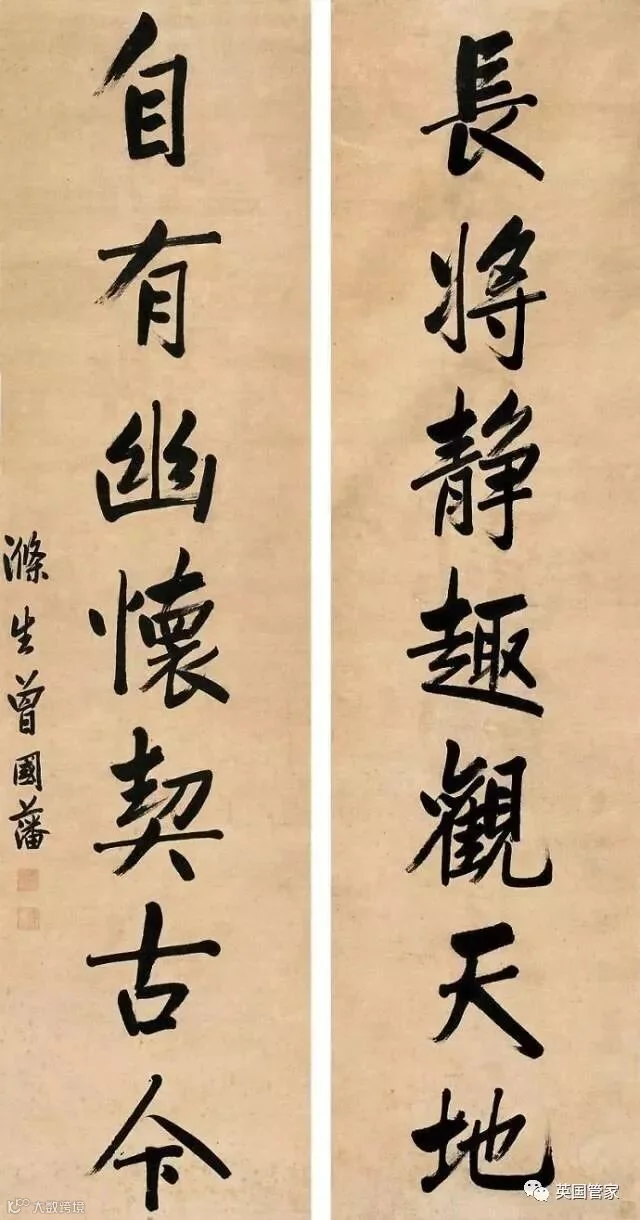 長將静趣觀天地
自有幽懷契古今
滌生曾國藩
英国管家
大数跨境